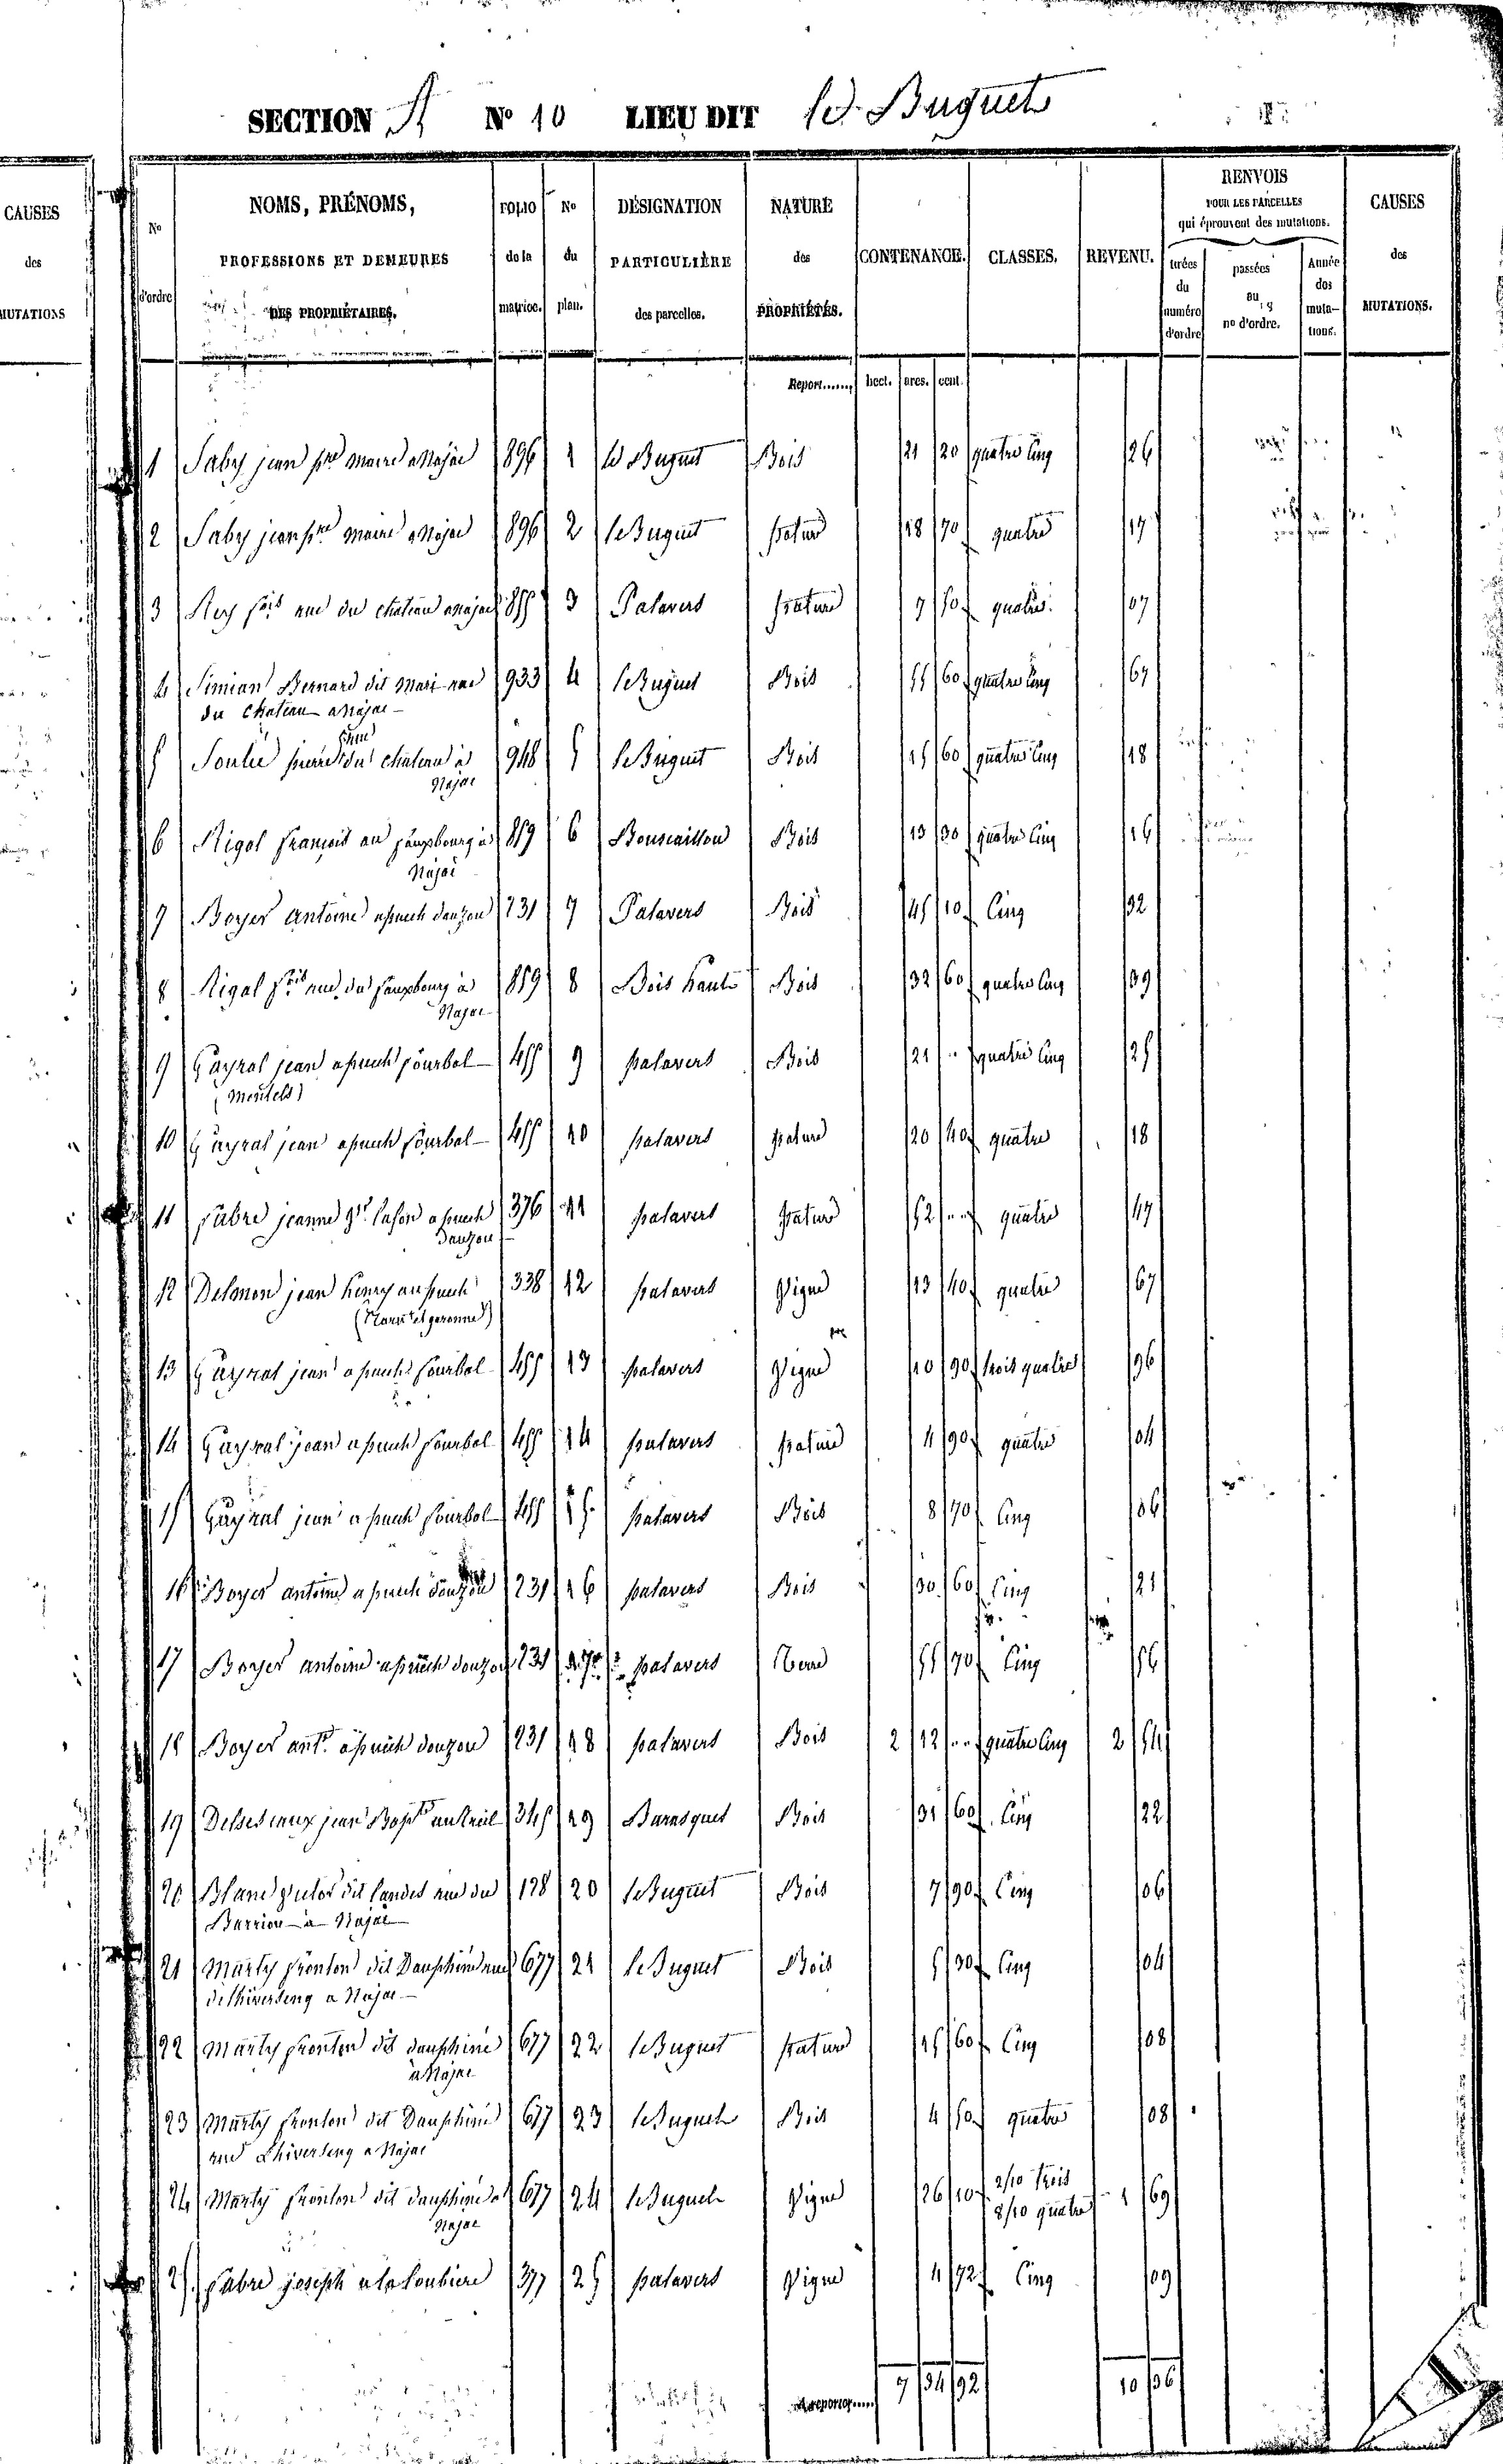 SECTION A N° 10 LIEU DIT Buguet
CAUSES des MUTATIONS
N° d'ordre
NOMS, PRÉNOMS, PROFESSIONS ET DEMEURES DES PROPRIÉTAIRES.
FOLIO de la matrice.
N° du plan.
DÉSIGNATION PARTICULIÈRE des parcelles.
NATURE des PROPRIÉTÉS.
CONTENANCE.
CLASSES.
REVENU.
RENVOIS POUR LES PARCELLES qui éprouvent des mutations.
tirées du numéro d'ordre
passées au n° d'ordre.
Année des mutations.
CAUSES des MUTATIONS.
Report...... hect. ares. cent.
1 Saby jean maire a Najac 896 1 le Buguet Bois 21 20 quatre cinq 26
2 Saby jean maire a Najac 896 2 le Buguet pature 18 70 quatre 17
3 Rey rue du chateau a najac 855 3 Palavers pature 7 50 quatre 07
4 Simian Bernard dit Mari rue 933 4 le Buguet Bois 55 60 quatre cinq 67
du Chateau a Najac
5 Soulié pierre du chateau à 948 5 le Buguet Bois 15 60 quatre cinq 18
Najac
6 Rigal françois au fauxbourg à 859 6 Bouscaillou Bois 13 30 quatre cinq 16
Najac
7 Boyer Antoine a puech dauzou 231 7 Palavers Bois 45 10 Cinq 32
8 Rigal rue du fauxbourg à 859 8 Bois haut Bois 32 60 quatre cinq 39
Najac
9 Gayral jean a puech sourbal 455 9 palavers Bois 21 .. quatre cinq 25
10 Gayral jean a puech sourbal 455 10 palavers pature 20 40 quatre 18
11 fabre jeanne a puech 376 11 palavers pature 52 .. quatre 47
dauzou
12 Delmon jean 338 12 palavers Vigne 13 40 quatre 67
13 Gayral jean a puech sourbal 455 13 palavers Vigne 10 90 trois quatre 96
14 Gayral jean a puech sourbal 455 14 palavers pature 4 90 quatre 04
15 Gayral jean a puech sourbal 455 15 palavers Bois 8 70 Cinq 06
16 Boyer antoine a puech dauzou 231 16 palavers Bois 30 60 Cinq 21
17 Boyer antoine a puech douzou 231 17 palavers Terre 55 70 Cinq 56
18 Boyer ant.e a puech douzou 231 18 palavers Bois 2 12 .. quatre cinq 2 54
19 jean Bap.te 345 19 Barasquet Bois 31 60 Cinq 22
20 dit landes rue du 178 20 le Buguet Bois 7 90 Cinq 06
Barriou a Najac
21 Marty fronton dit Dauphiné rue 677 21 le Buguet Bois 5 30 Cinq 04
a Najac
22 Marty fronton dit dauphiné 677 22 le Buguet pature 15 60 Cinq 08
a Najac
23 Marty fronton dit Dauphiné 677 23 le Buguet Bois 4 50 quatre 08
rue a Najac
24 Marty fronton dit dauphiné a 677 24 le Buguet Vigne 26 10 2/10 trois 1 69
Najac 8/10 quatre
25 fabre joseph a la Loubiere 377 25 palavers Vigne 4 72 Cinq 09
A reporter..... 7 34 92 10 36